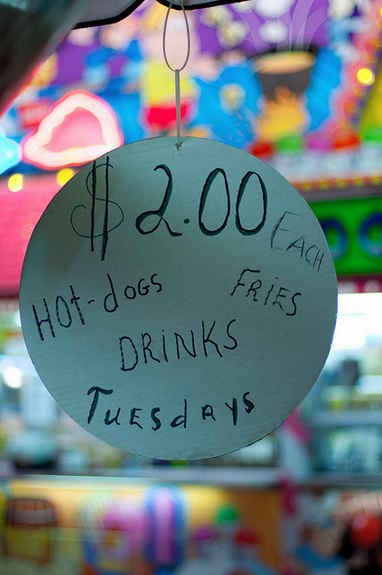 $2.00 EACH
HOT-dOGS FRIES
DRINKS
TUESdAYS